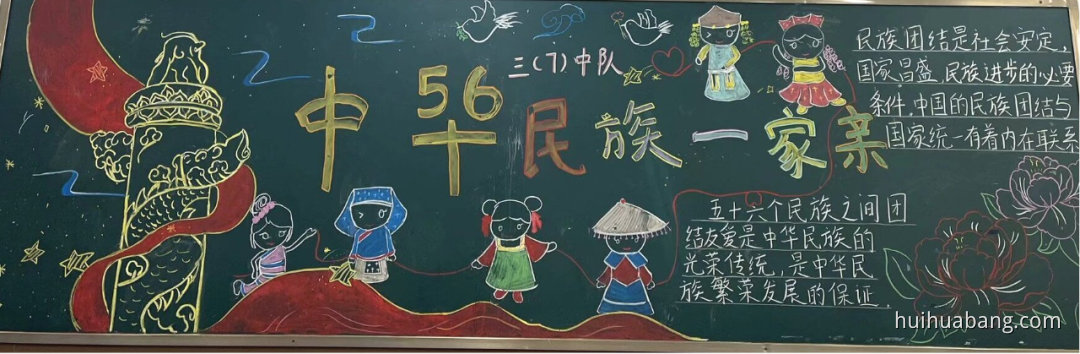 三(7)中队
中华民族一家亲
民族团结是社会安定，
国家昌盛，民族进步的必要
条件，中国的民族团结与
国家统一有着内在联系
五十六个民族之间团
结友爱是中华民族的
光荣传统，是中华民
族繁荣发展的保证．
huihuabang.com